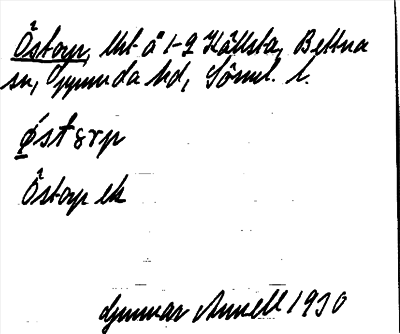 Östorp, lht å 1-2 Hällsta, Bettna
sn, Oppunda hd, Söml. l.
ø̨̀st ɛrp
Östorp ek
Gunnar Annell 1930